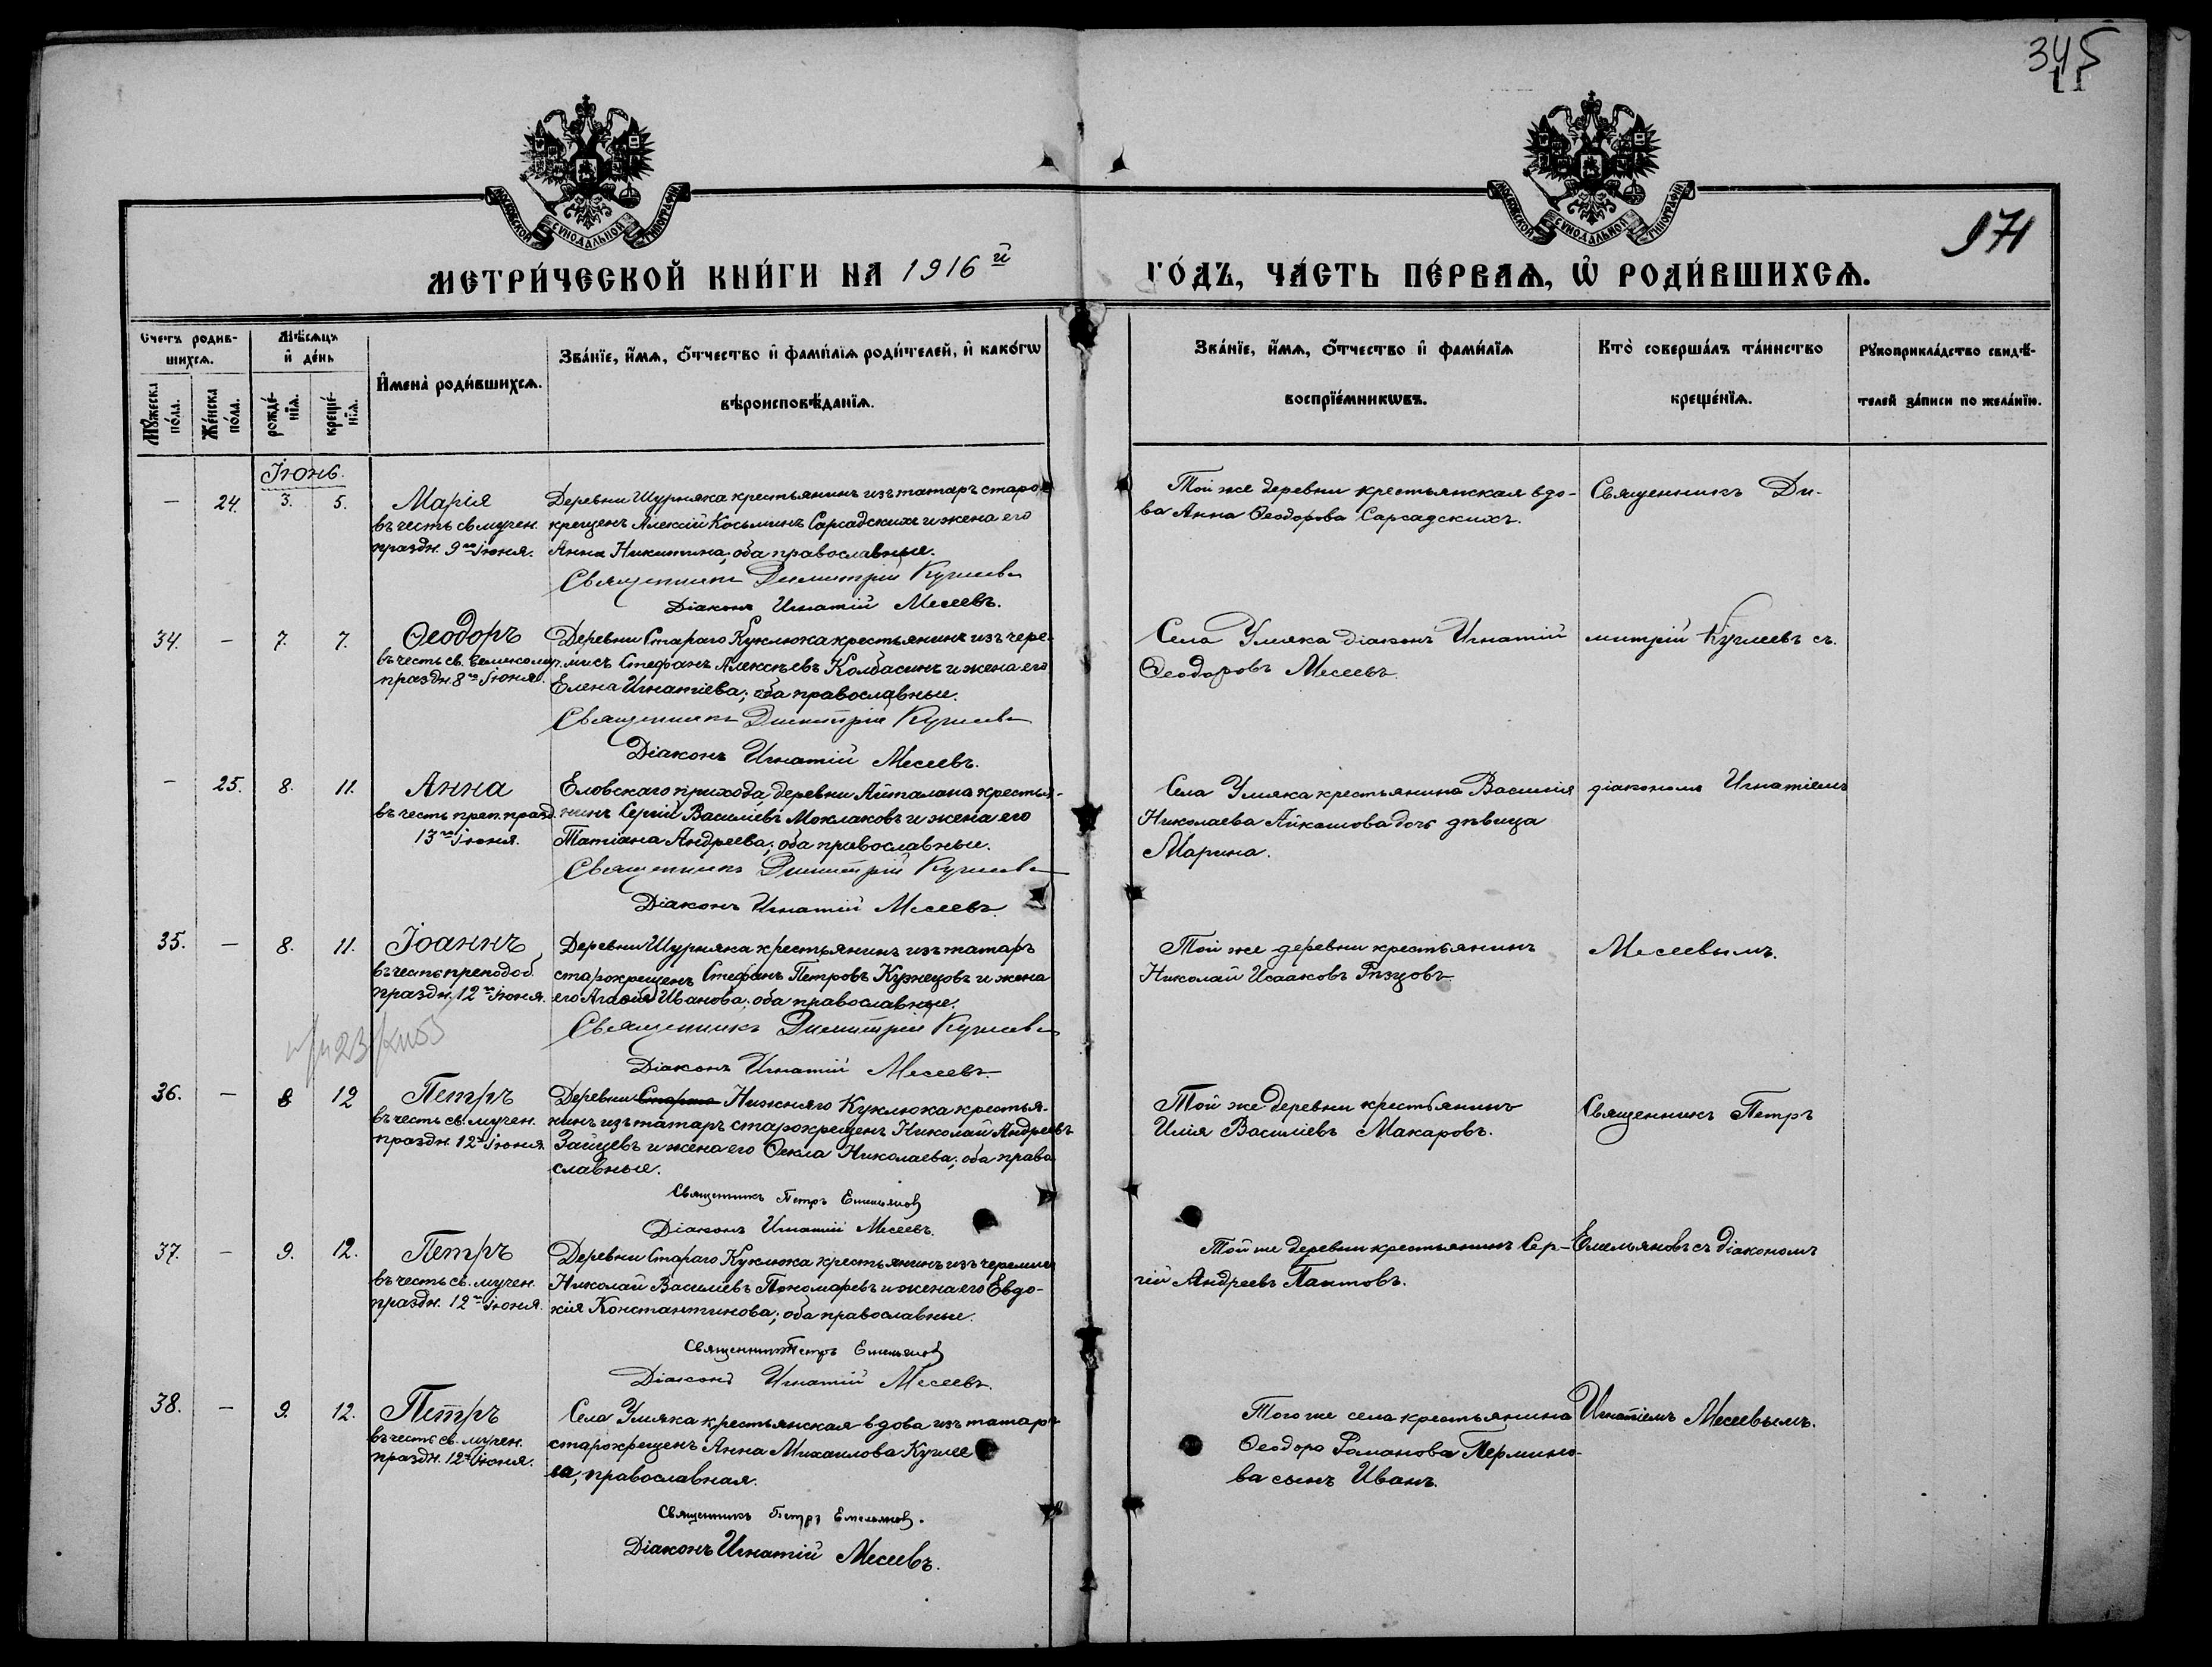 345
171
МОСКОВСКОЙ СѴНОДАЛЬНОЙ ТИПОГРАФІИ
МОСКОВСКОЙ СѴНОДАЛЬНОЙ ТИПОГРАФІИ
МЕТРИ́ЧЕСКОЙ КНИ́ГИ НА 1916й ГО́ДЪ, ЧА́СТЬ ПЕ́РВАѦ, Ѡ҆ РОДИ́ВШИХСѦ.
Счетъ родив-
шихсѧ.
Мꙋжеска по́ла.
Же́нска по́ла.
Мѣ́сѧцъ
и҆ де́нь
рожде́-
нїѧ.
креще́-
нїѧ.
И҆мена̀ роди́вшихсѧ.
Зва́нїе, и҆́мѧ, ѻ҆́тчество и҆ фами́лїѧ роди́телей, и҆ како́гѡ
вѣроисповѣ́данїѧ.
Зва́нїе, и҆́мѧ, ѻ҆́тчество и҆ фами́лїѧ
воспрїе́мникѡвъ.
Кто̀ соверша́лъ та́инство
креще́нїѧ.
Рꙋкоприкла́дство свидѣ́-
телей за́писи по жела́нїю.
Іюнь.
— 24. 3. 5. Марія
въ честь св. мучен.
праздн. 9го Іюня.
Деревни Шурняка крестьянинъ изъ татаръ старо-
крещенъ Алексій Косьминъ Сарсадскихъ и жена его
Анна Никитина; оба православные.
Священникъ Димитрій Кугиевъ
Діаконъ Игнатій Месеевъ.
Той же деревни крестьянская вдо-
ва Анна Ѳеодорова Сарсадскихъ.
Священникъ Ди-
34. — 7. 7. Ѳеодоръ
въ честь св. великомуч.
праздн. 8го Іюня.
Деревни Стараго Куклюка крестьянинъ изъ чере-
мисъ Стефанъ Алексѣевъ Колбасинъ и жена его
Елена Игнатіева; оба православные.
Священникъ Димитрій Кугиевъ
Діаконъ Игнатій Месеевъ.
Села Умяка діаконъ Игнатій
Ѳеодоровъ Месеевъ.
митрій Кугиеевъ съ
— 25. 8. 11. Анна
въ честь преп. празд.
13го Іюня.
Еловскаго прихода, деревни Айталана крестья-
нинъ Сергій Василіевъ Моклаковъ и жена его
Татіана Андреева; оба православные.
Священникъ Димитрій Кугиевъ
Діаконъ Игнатій Месеевъ.
Села Умяка крестьянина Василія
Николаева Айкашова дочь дѣвица
Марина.
діакономъ Игнатіемъ
35. — 8. 11. Іоаннъ
въ честь преподоб.
праздн. 12го Іюня.
Деревни Шурняка крестьянинъ изъ татаръ
старокрещенъ Стефанъ Петровъ Кузнецовъ и жена
его Агаѳія Иванова; оба православные.
Священникъ Димитрій Кугиевъ
Діаконъ Игнатій Месеевъ.
Той же деревни крестьянинъ
Николай Исааковъ Рѣзцовъ
Месеевымъ.
36. — 8 12 Петръ
въ честь св. мучен.
праздн. 12го Іюня.
Деревни Стараго Нижняго Куклюка крестья-
нинъ изъ татаръ старокрещенъ Николай Андреевъ
Зайцевъ и жена его Ѳекла Николаева; оба право
славные.
Священникъ Петръ Емельянов
Діаконъ Игнатій Месеевъ.
Той же деревни крестьянинъ
Илія Василіевъ Макаровъ.
Священникъ Петръ
37. — 9. 12. Петръ
въ честь св. мучен.
праздн. 12го Іюня.
Деревни Стараго Куклюка крестьянинъ изъ черемисъ
Николай Василіевъ Пономаревъ и жена его Евдо-
кія Константинова; оба православные.
Священникъ Петръ Емельянов
Діаконъ Игнатій Месеевъ.
Той же деревни крестьянинъ Сер-
гій Андреевъ Паптовъ.
Емельяновъ съ діакономъ
38. — 9. 12. Петръ
въ честь св. мучен.
праздн. 12го Іюня.
Села Умяка крестьянская вдова изъ татаръ
старокрещенъ Анна Михаилова Кугиее
ва, православная.
Священникъ Петръ Емельянов.
Діаконъ Игнатій Месеевъ.
Того же села крестьянина
Ѳеодора Романова Пермино-
ва сынъ Иванъ.
Игнатіемъ Месеевымъ.